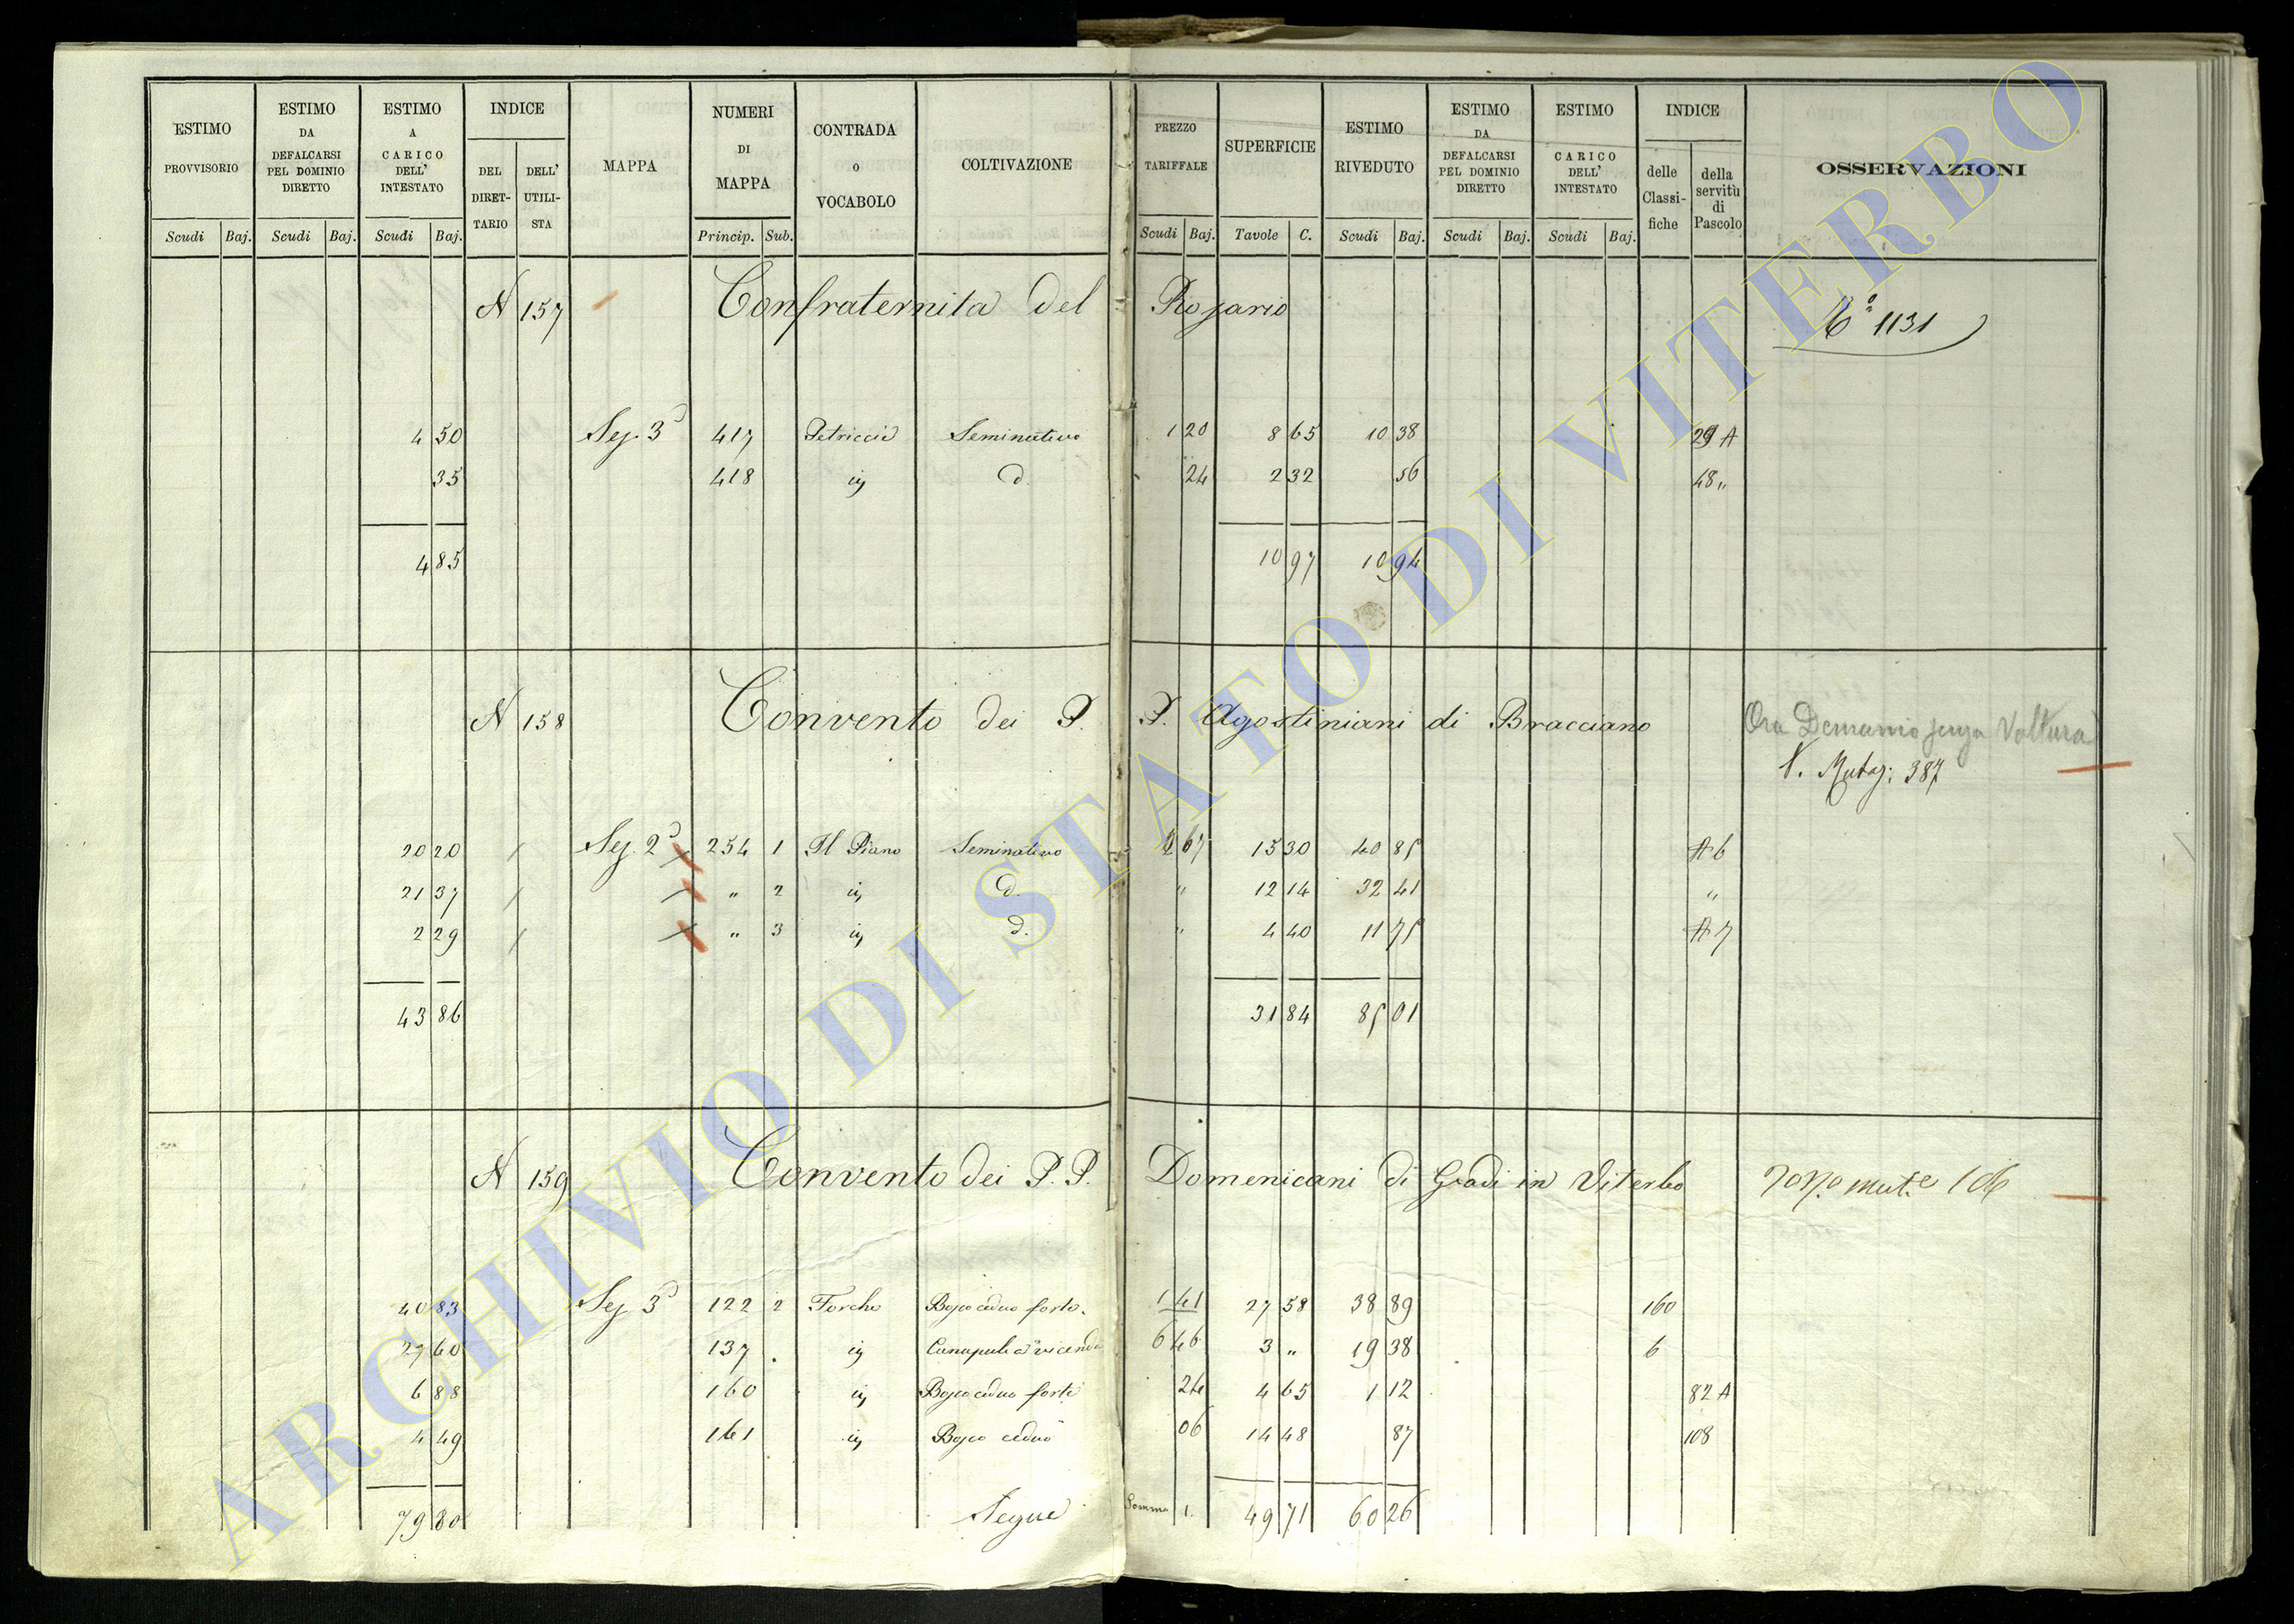 ESTIMO PROVVISORIO | ESTIMO DA DEFALCARSI PEL DOMINIO DIRETTO | ESTIMO A CARICO DELL' INTESTATO | INDICE DEL DIRET-TARIO | DELL' UTILI-STA | MAPPA | NUMERI DI MAPPA | CONTRADA o VOCABOLO | COLTIVAZIONE | PREZZO TARIFFALE | SUPERFICIE | ESTIMO RIVEDUTO | ESTIMO DA DEFALCARSI PEL DOMINIO DIRETTO | ESTIMO CARICO DELL' INTESTATO | INDICE delle Classi-fiche | della servitù di Pascolo | OSSERVAZIONI
Scudi | Baj. | Scudi | Baj. | Scudi | Baj. | Princip. | Sub. | Scudi | Baj. | Tavole | C. | Scudi | Baj. | Scudi | Baj. | Scudi | Baj.
N 157 Confraternita del Rosario 1131
4 50 Sez. 3ª 417 Petriccia Seminativo 1 20 8 65 10 38 29 A
35 418 id. 24 2 32 56 48 "
4 85 10 97 10 94
N 158 Convento dei P. P. Agostiniani di Bracciano Ora Demanio senza Voltura
V. Mutaz: 387
20 20 / Sez. 2ª 254 1 Il Piano Seminativo 2 67 15 30 40 85 A 6
21 37 / " 2 id. " 12 14 32 41 "
2 29 / " 3 id. " 4 40 11 75 A 7
43 86 31 84 85 01
N 159 Convento dei P. P. Domenicani di Gradi in Viterbo
40 83 Sez. 3ª 122 2 Forcho Bosco ceduo forte. 1 41 27 58 38 89 160
27 60 137 Canapule a vicenda 6 46 3 " 19 38 6
6 88 160 Bosco ceduo forte 24 4 65 1 12 82 A
4 49 161 Bosco ceduo 06 14 48 87 108
79 80 Segue Somma 49 71 60 26
ARCHIVIO DI STATO DI VITERBO